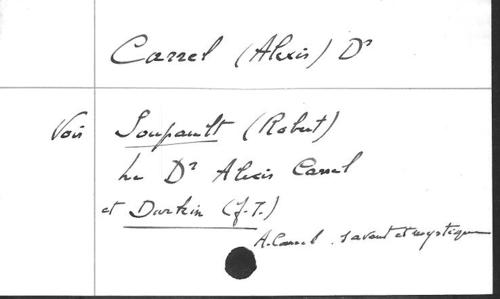 Carrel (Alexis) Dr
Voir Soupault (Robert)
Le Dr Alexis Carrel
et Durkin (J.T.)
A. Carrel, savant et mystique